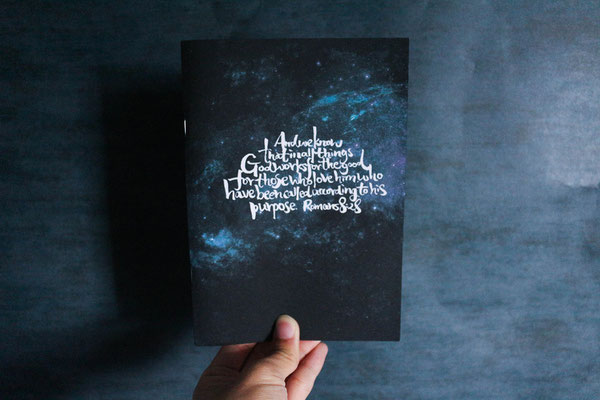 And we know
that in all things
God works for the good
for those who love him who
have been called according to his
purpose. Romans 8:28